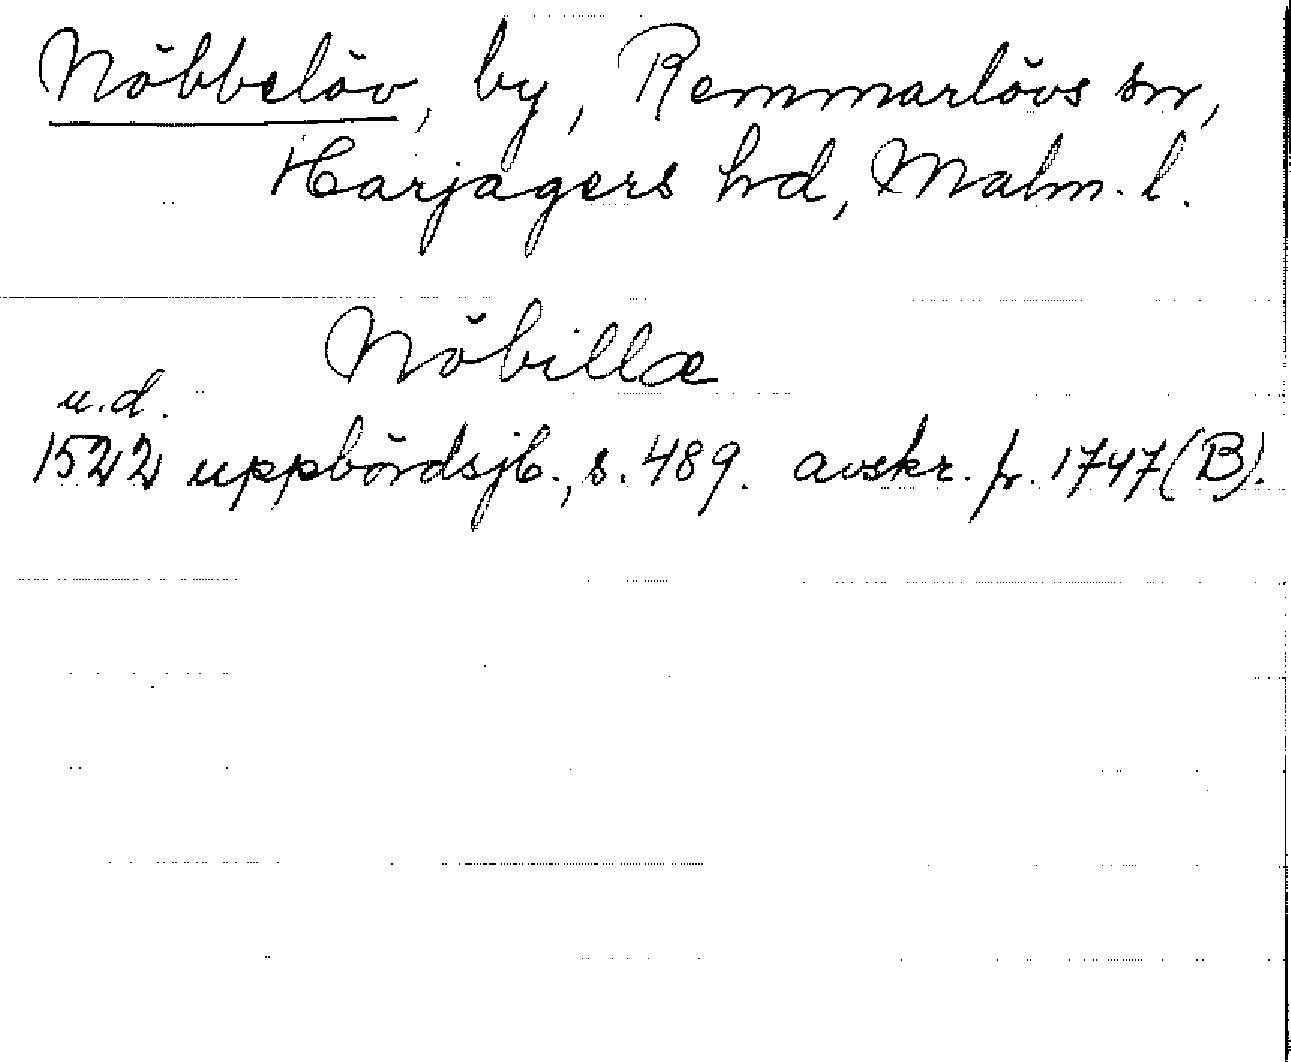 Nöbbelöv, by, Remmarlövs sn,
Harjagers hd, Malm. l.
Nöbillæ
u.d.
1522 uppbördsjb., s. 489. avskr. fr. 1747 (B).